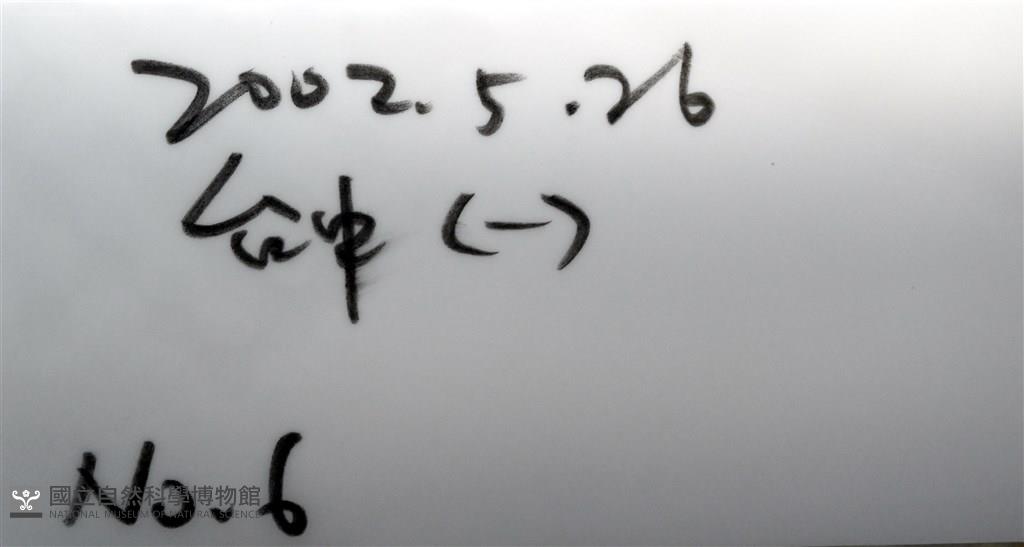 2002.5.26
台中（一）
No.6
國立自然科學博物館
NATIONAL MUSEUM OF NATURAL SCIENCE